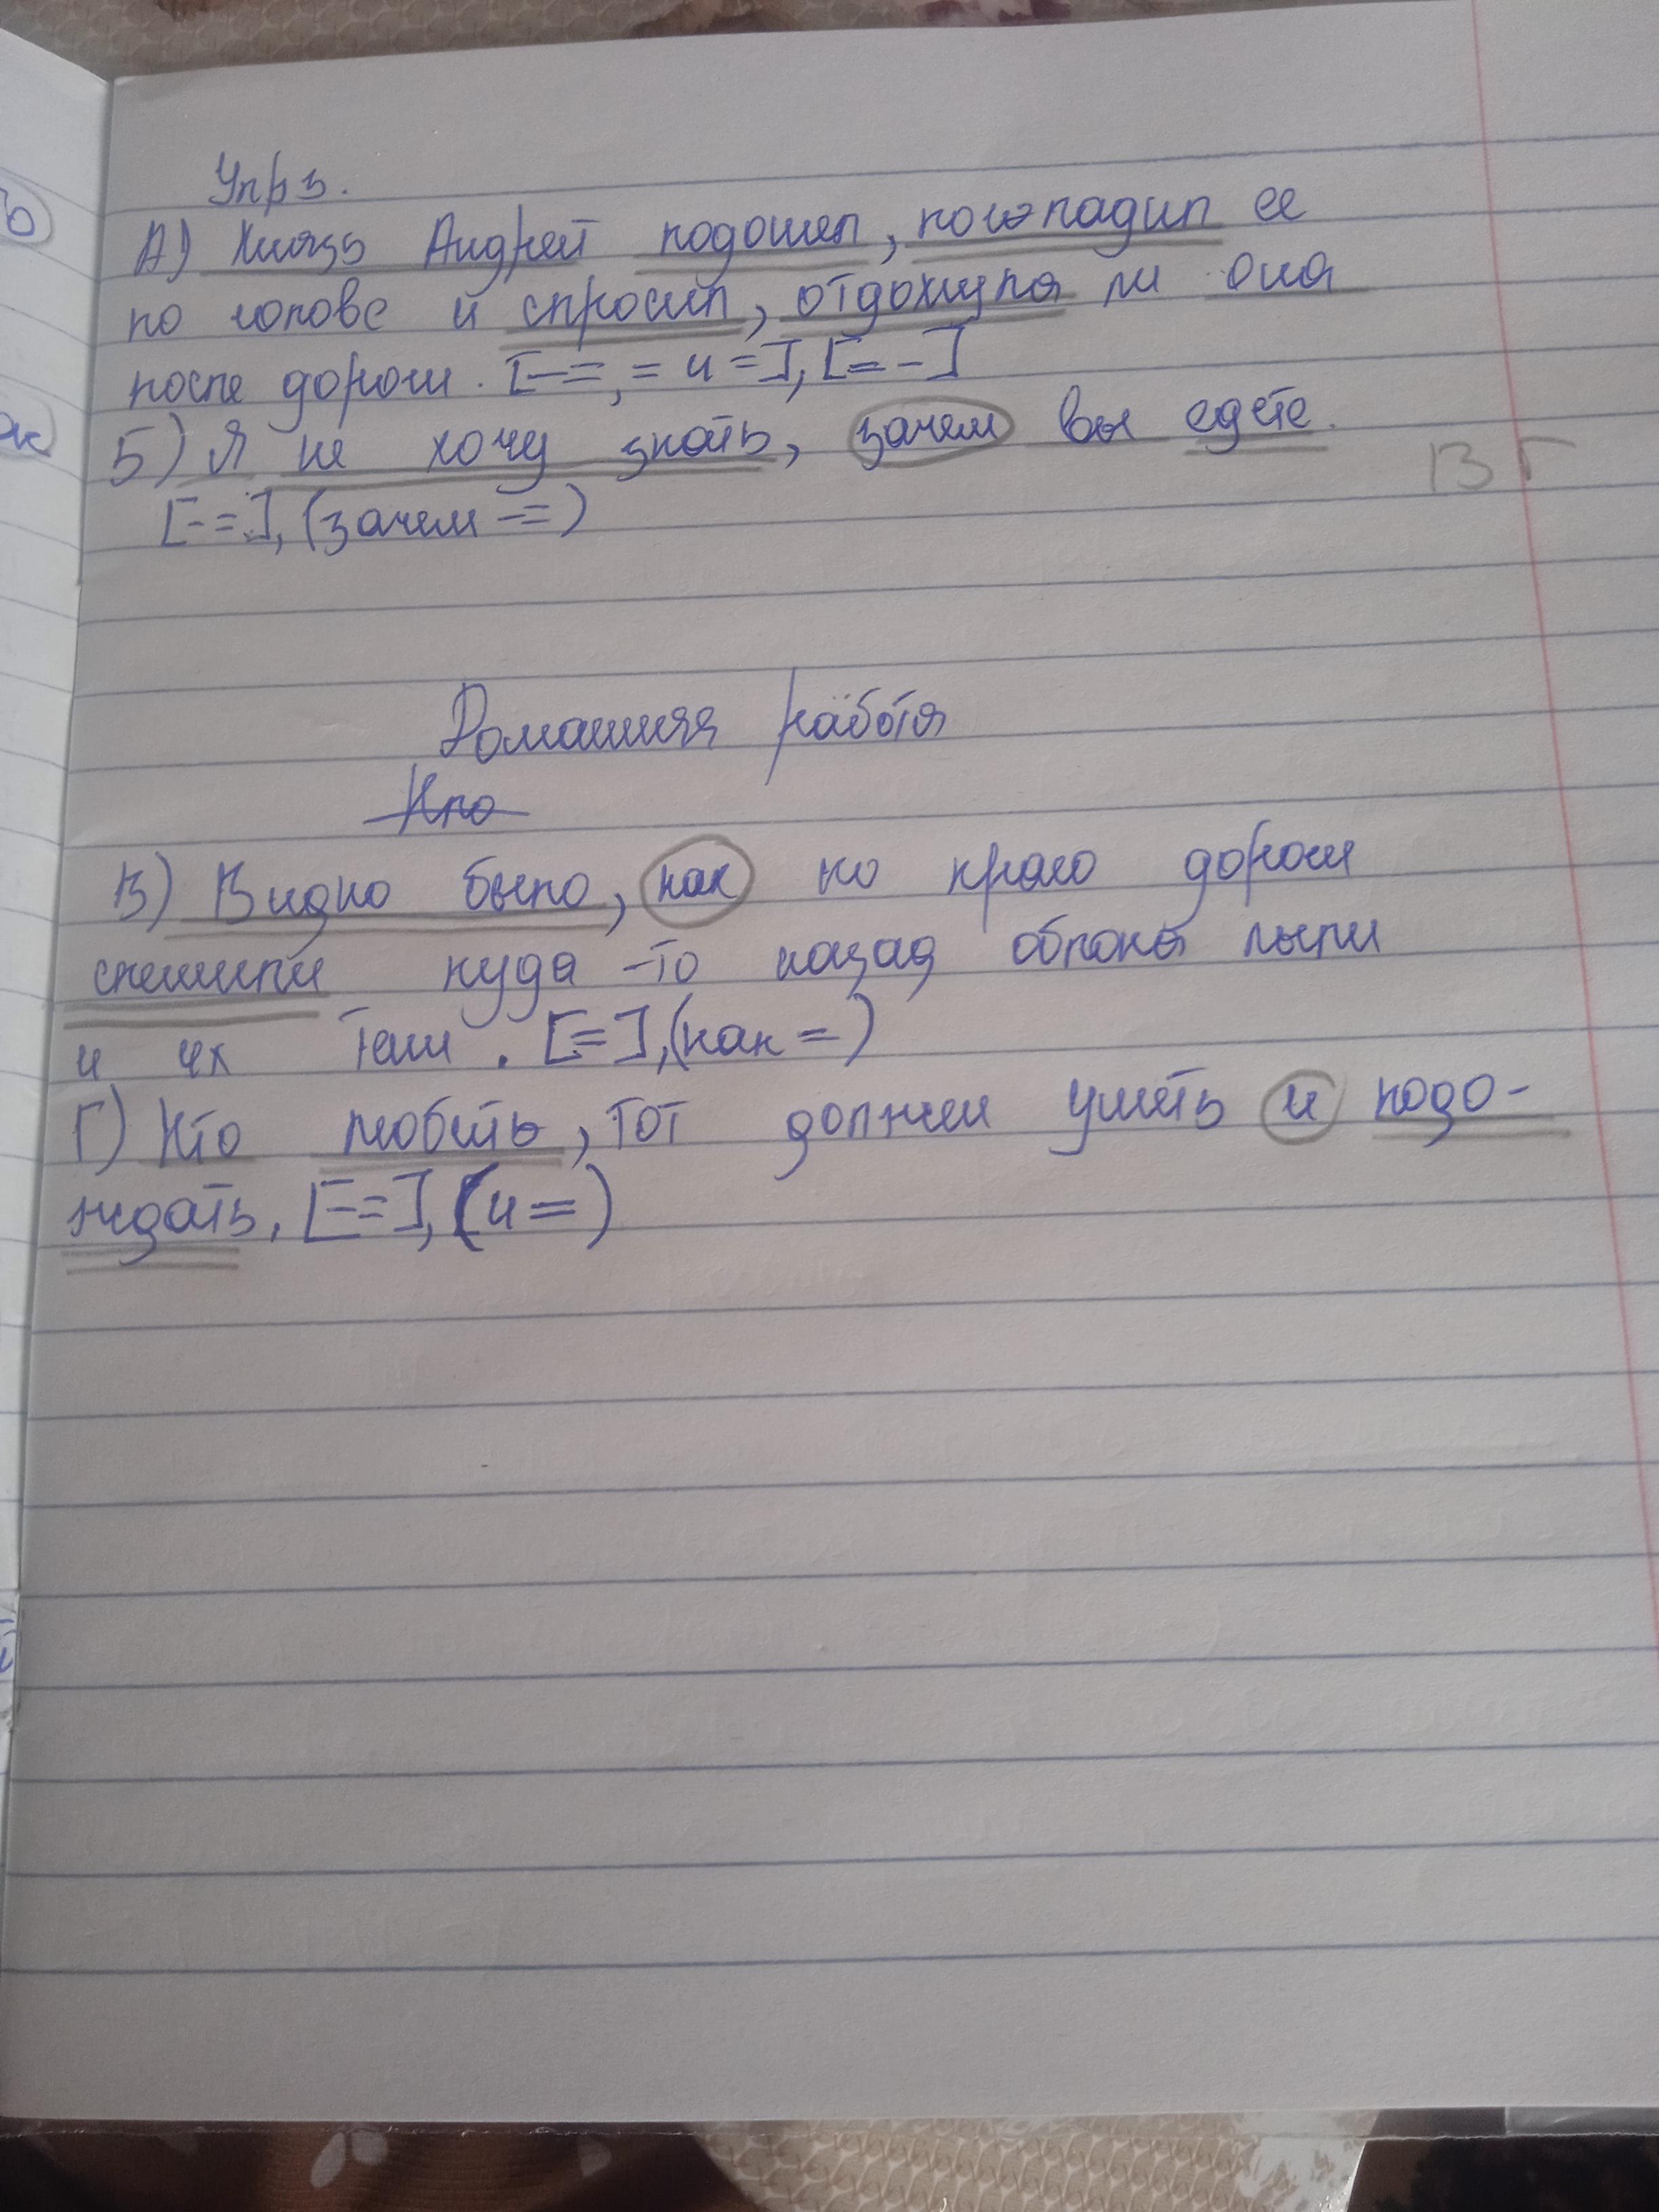 Упр 3.
А) Князь Андрей подошел, погладил ее
по голове и спросил, отдохнула ли она
после дороги. [-=, = и =], [= -]
Б) Я не хочу знать, зачем вы едете.
[-=], (зачем -=)
В Г
Домашняя работа
В) Видно было, как по краю дороги
спешили куда-то назад облака пыли
и их тени. [=], (как =)
Г) Кто любить, тот должен уметь и подо-
ждать. [-=], (и =)